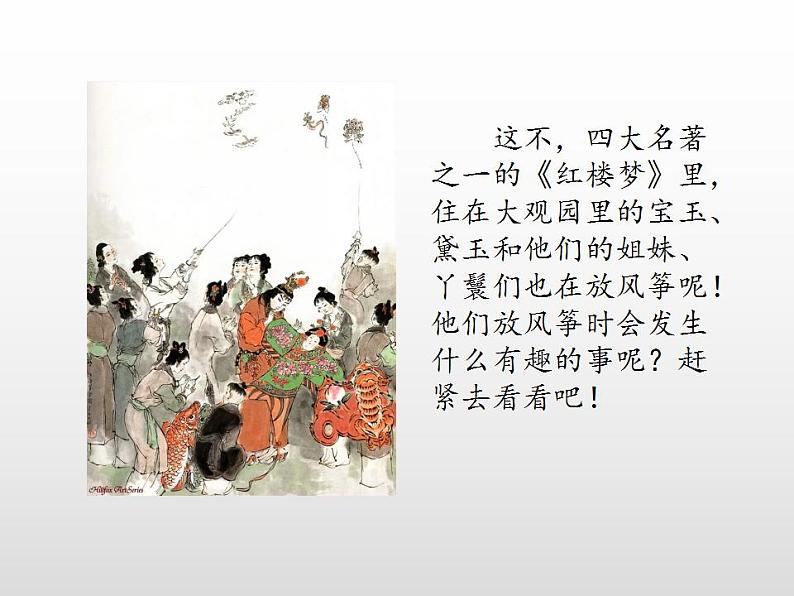 这不，四大名著
之一的《红楼梦》里，
住在大观园里的宝玉、
黛玉和他们的姐妹、
丫鬟们也在放风筝呢！
他们放风筝时会发生
什么有趣的事呢？赶
紧去看看吧！